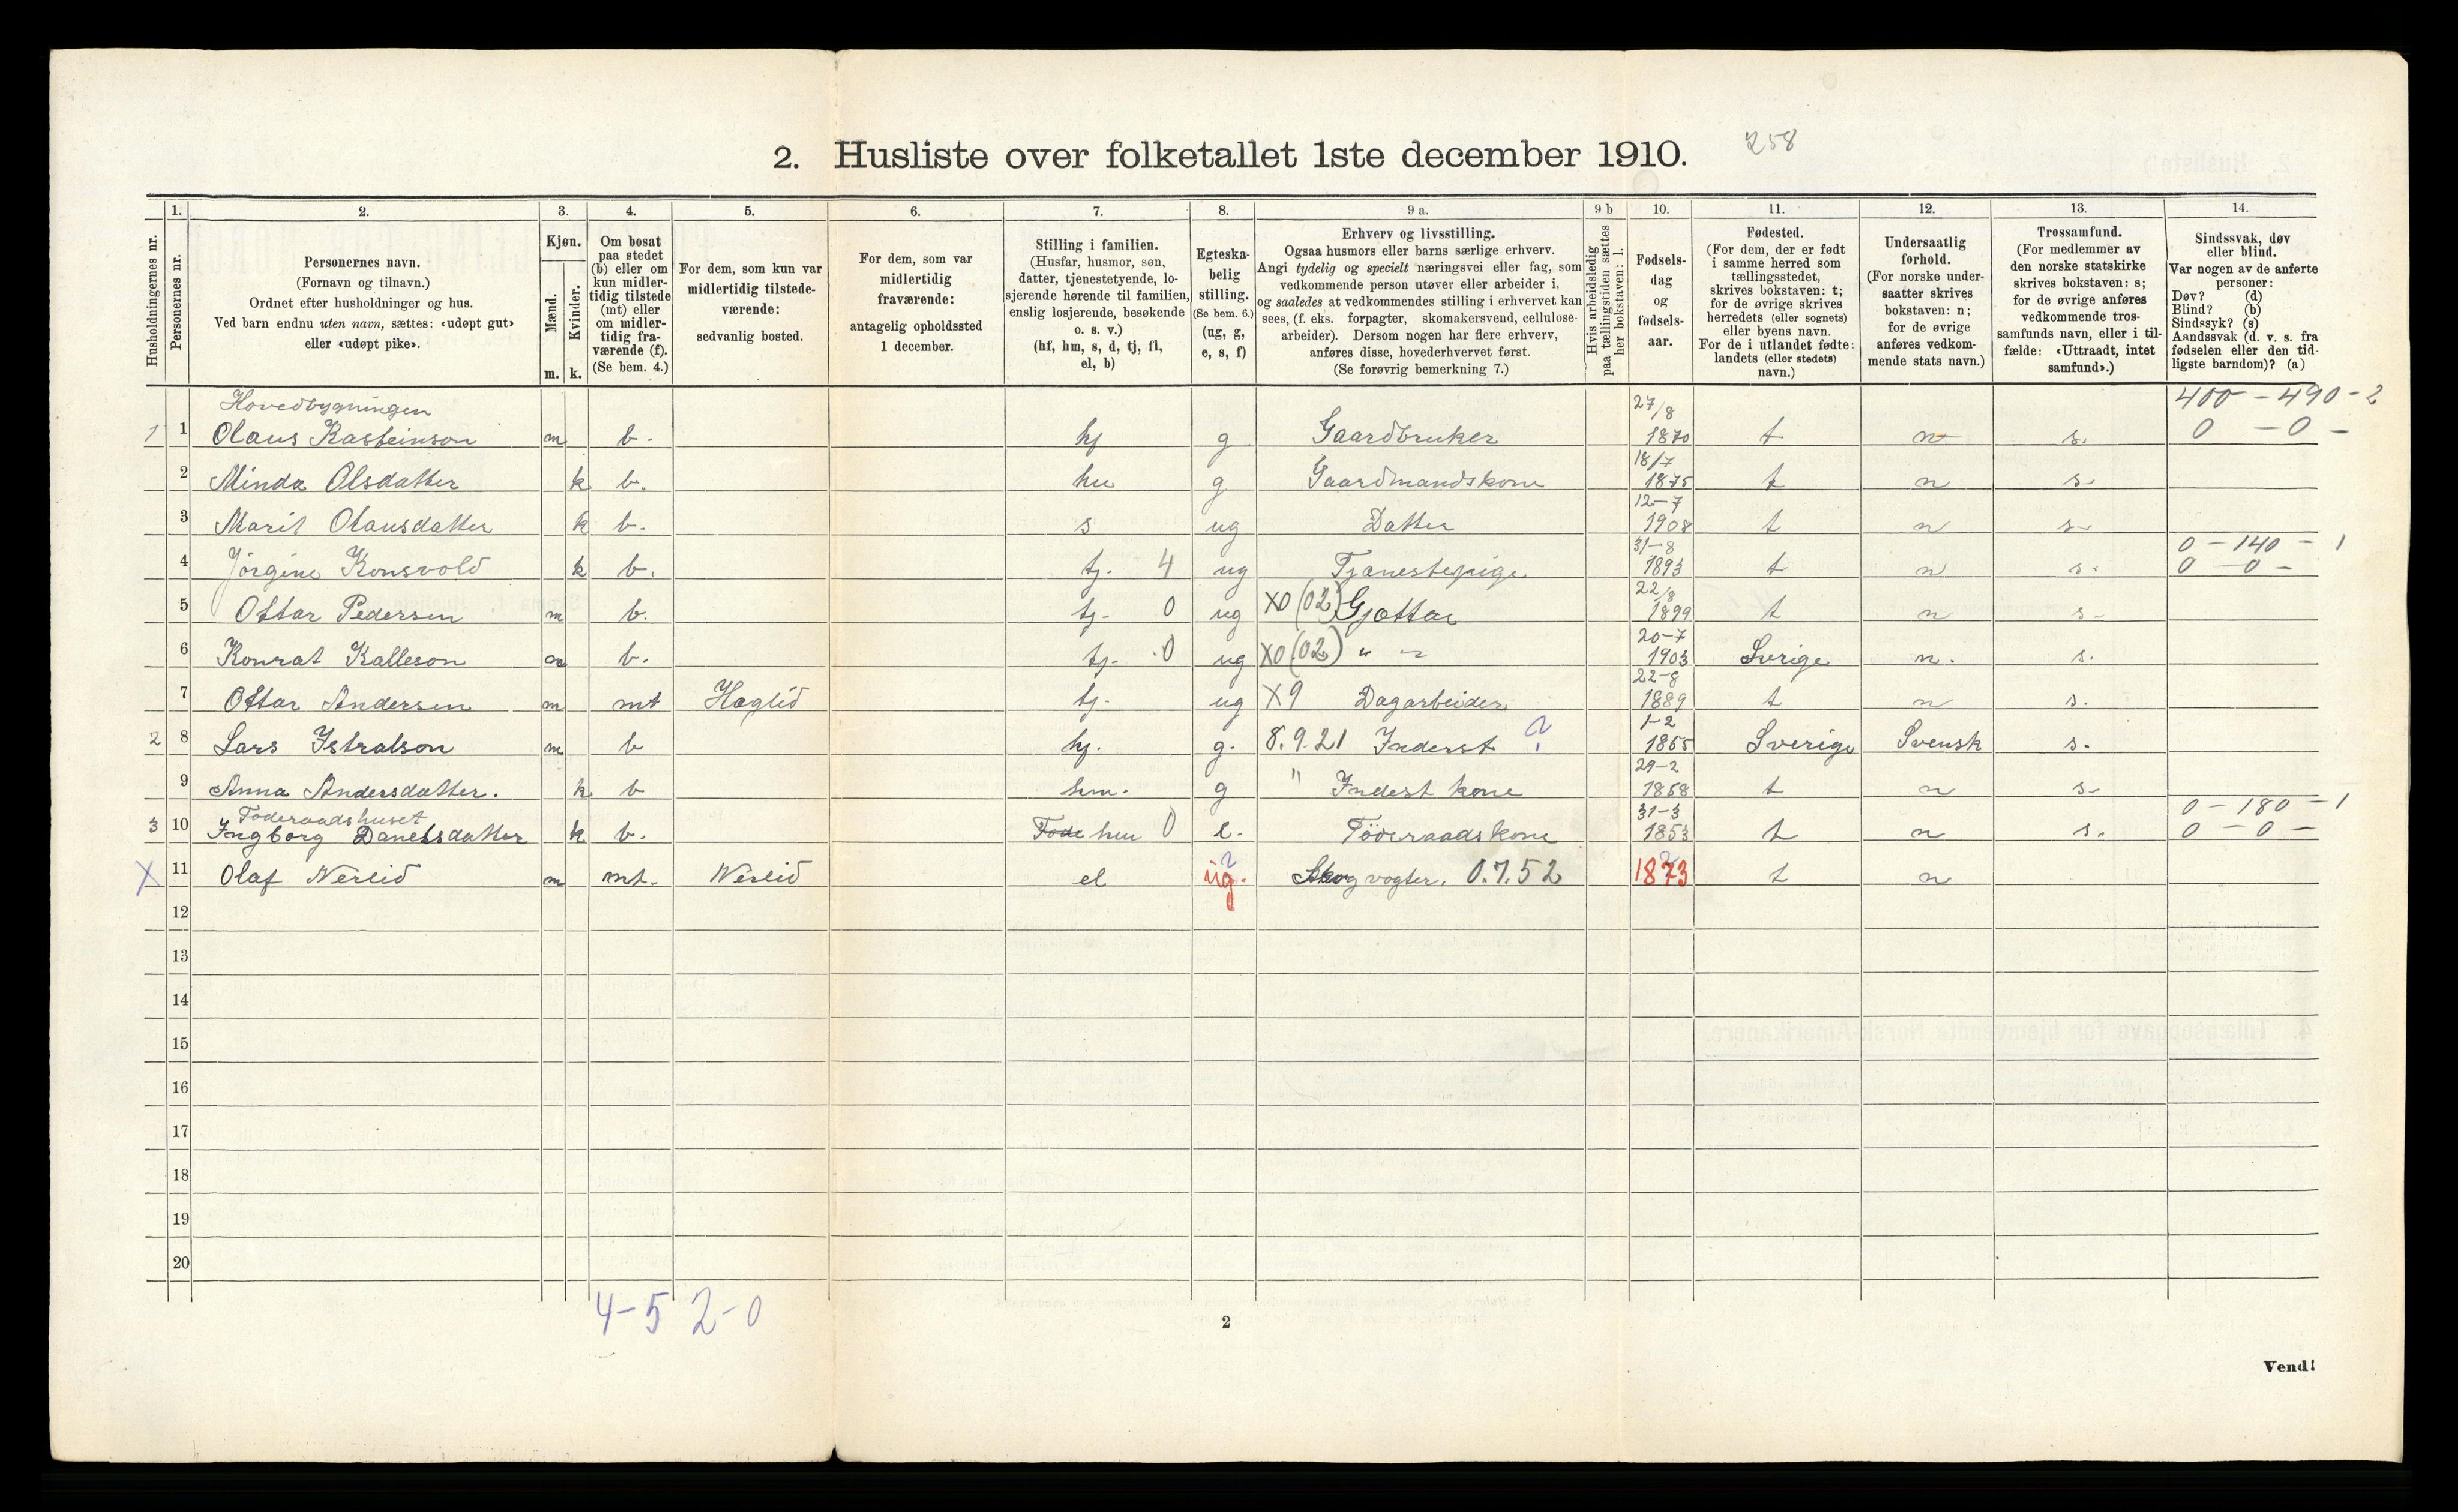 2. Husliste over folketallet 1ste december 1910. 258
1. 2. 3. 4. 5. 6. 7. 8. 9 a. 9 b 10. 11. 12. 13. 14.
Husholdningernes nr.
Personernes nr.
Personernes navn.
(Fornavn og tilnavn.)
Ordnet efter husholdninger og hus.
Ved barn endnu uten navn, sættes: «udøpt gut»
eller «udøpt pike».
Kjøn.
Mænd.
Kvinder.
m. k.
Om bosat
paa stedet
(b) eller om
kun midler-
tidig tilstede
(mt) eller
om midler-
tidig fra-
værende (f).
(Se bem. 4.)
For dem, som kun var
midlertidig tilstede-
værende:
sedvanlig bosted.
For dem, som var
midlertidig
fraværende:
antagelig opholdssted
1 december.
Stilling i familien.
(Husfar, husmor, søn,
datter, tjenestetyende, lo-
sjerende hørende til familien,
enslig losjerende, besøkende
o. s. v.)
(hf, hm, s, d, tj, fl,
el, b)
Egteska-
belig
stilling.
(Se bem. 6.)
(ug, g,
e, s, f)
Erhverv og livsstilling.
Ogsaa husmors eller barns særlige erhverv.
Angi tydelig og specielt næringsvei eller fag, som
vedkommende person utøver eller arbeider i,
og saaledes at vedkommendes stilling i erhvervet kan
sees, (f. eks. forpagter, skomakersvend, cellulose-
arbeider). Dersom nogen har flere erhverv,
anføres disse, hovederhvervet først.
(Se forøvrig bemerkning 7.)
Hvis arbeidsledig
paa tællingstiden sættes
her bokstaven: l.
Fødsels-
dag
og
fødsels-
aar.
Fødested.
(For dem, der er født
i samme herred som
tællingsstedet,
skrives bokstaven: t;
for de øvrige skrives
herredets (eller sognets)
eller byens navn.
For de i utlandet fødte:
landets (eller stedets)
navn.)
Undersaatlig
forhold.
(For norske under-
saatter skrives
bokstaven: n;
for de øvrige
anføres vedkom-
mende stats navn.)
Trossamfund.
(For medlemmer av
den norske statskirke
skrives bokstaven: s;
for de øvrige anføres
vedkommende tros-
samfunds navn, eller i til-
fælde: «Uttraadt, intet
samfund».)
Sindssvak, døv
eller blind.
Var nogen av de anførte
personer:
Døv? (d)
Blind? (b)
Sindssyk? (s)
Aandssvak (d. v. s. fra
fødselen eller den tid-
ligste barndom)? (a)
Hovedbygningen 27/8 400 - 490 - 2
1 1 Olaus Kasteinson m b. hf g Gaardbruker 1870 t n s. 0 - 0 -
18/7
2 Minda Olsdatter k b. hu g Gaardmandskone 1875 t n s.
12-7
3 Marit Olausdatter k b. s ug Datter 1908 t n s.
31-8 0 - 140 - 1
4 Jörgine Konsvold k b. tj. 4 ug Tjænestepige 1893 t n s. 0 - 0 -
22/8
5 Ottar Pedersen m b. tj. 0 ug X0 (02) Gjættar 1899 t n s.
20-7
6 Konrat Kalleson m b. tj. 0 ug X0 (02) " " 1903 Sverige n. s.
22-8
7 Ottar Andersen m mt Haglid tj. ug X9 Dagarbeider 1889 t n s.
1-2
2 8 Lars Istralson m b hf. g. 8.9.21 Inderst ? 1865 Sverige Svensk s.
29-2
9 Anna Andersdatter. k b hm. g " Indest kone 1858 t n s.
Föderaadshuset 31-3 0 - 180 - 1
3 10 Ingborg Danelsdatter k b. Fode hm 0 e. Föderaadskone 1853 t n s. 0 - 0 -
X 11 Olaf Nerlid m mt. Nerlid el ug. ? Skogvogter. 0.7.52 1873 t n
12
13
14
15
16
17
18
19
20
4-5 2-0
2
Vend!